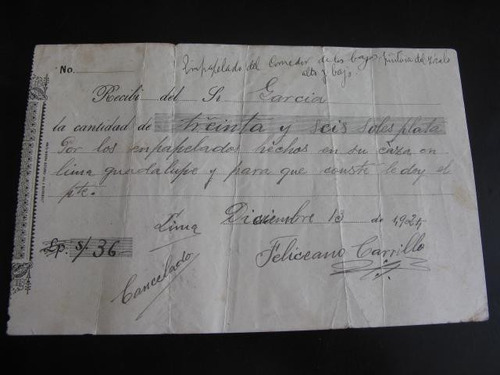 Empapelado del Comedor de los bajos, pintura del zócalo
alto y bajo
No.
Recibí del Sr Garcia
la cantidad de treinta y seis soles plata
Por los empapelado hechos en su casa en
lima guadalupe y para que conste le doy el
pte.
Lima Diciembre 13 de 1924
Lp. S/. 36
Feliceano Carrillo
Cancelado